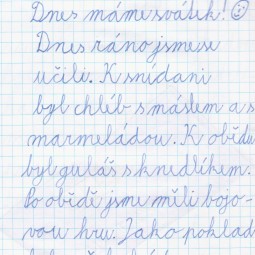 Dnes máme svátek!
Dnes ráno jsme se
učili. K snídani
byl chléb s máslem a s
marmeládou. K obědu
byl guláš s knedlíkem.
Po obědě jsme měli bojo-
vou hru. Jako poklad